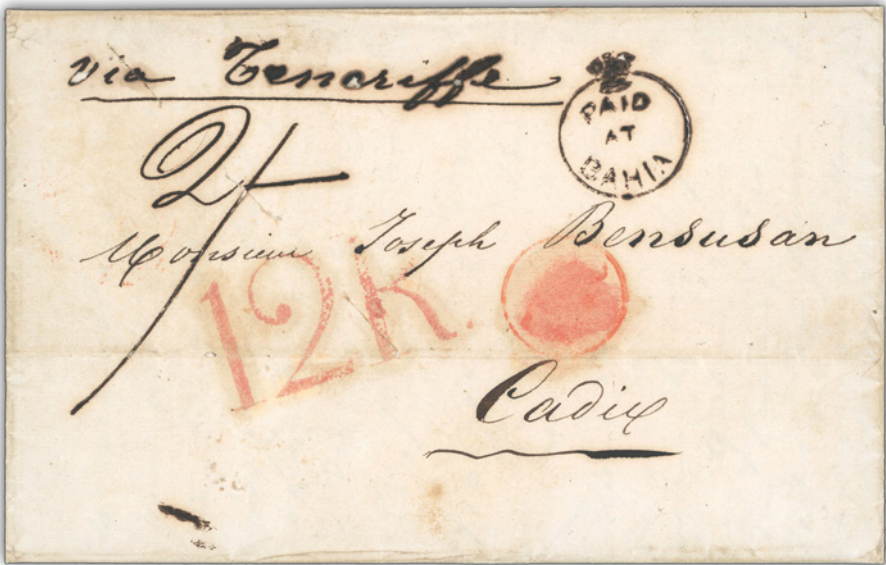 via Teneriffe
PAID
AT
BAHIA
2/
Monsieur Joseph Bensusan
12 R.
Cadix